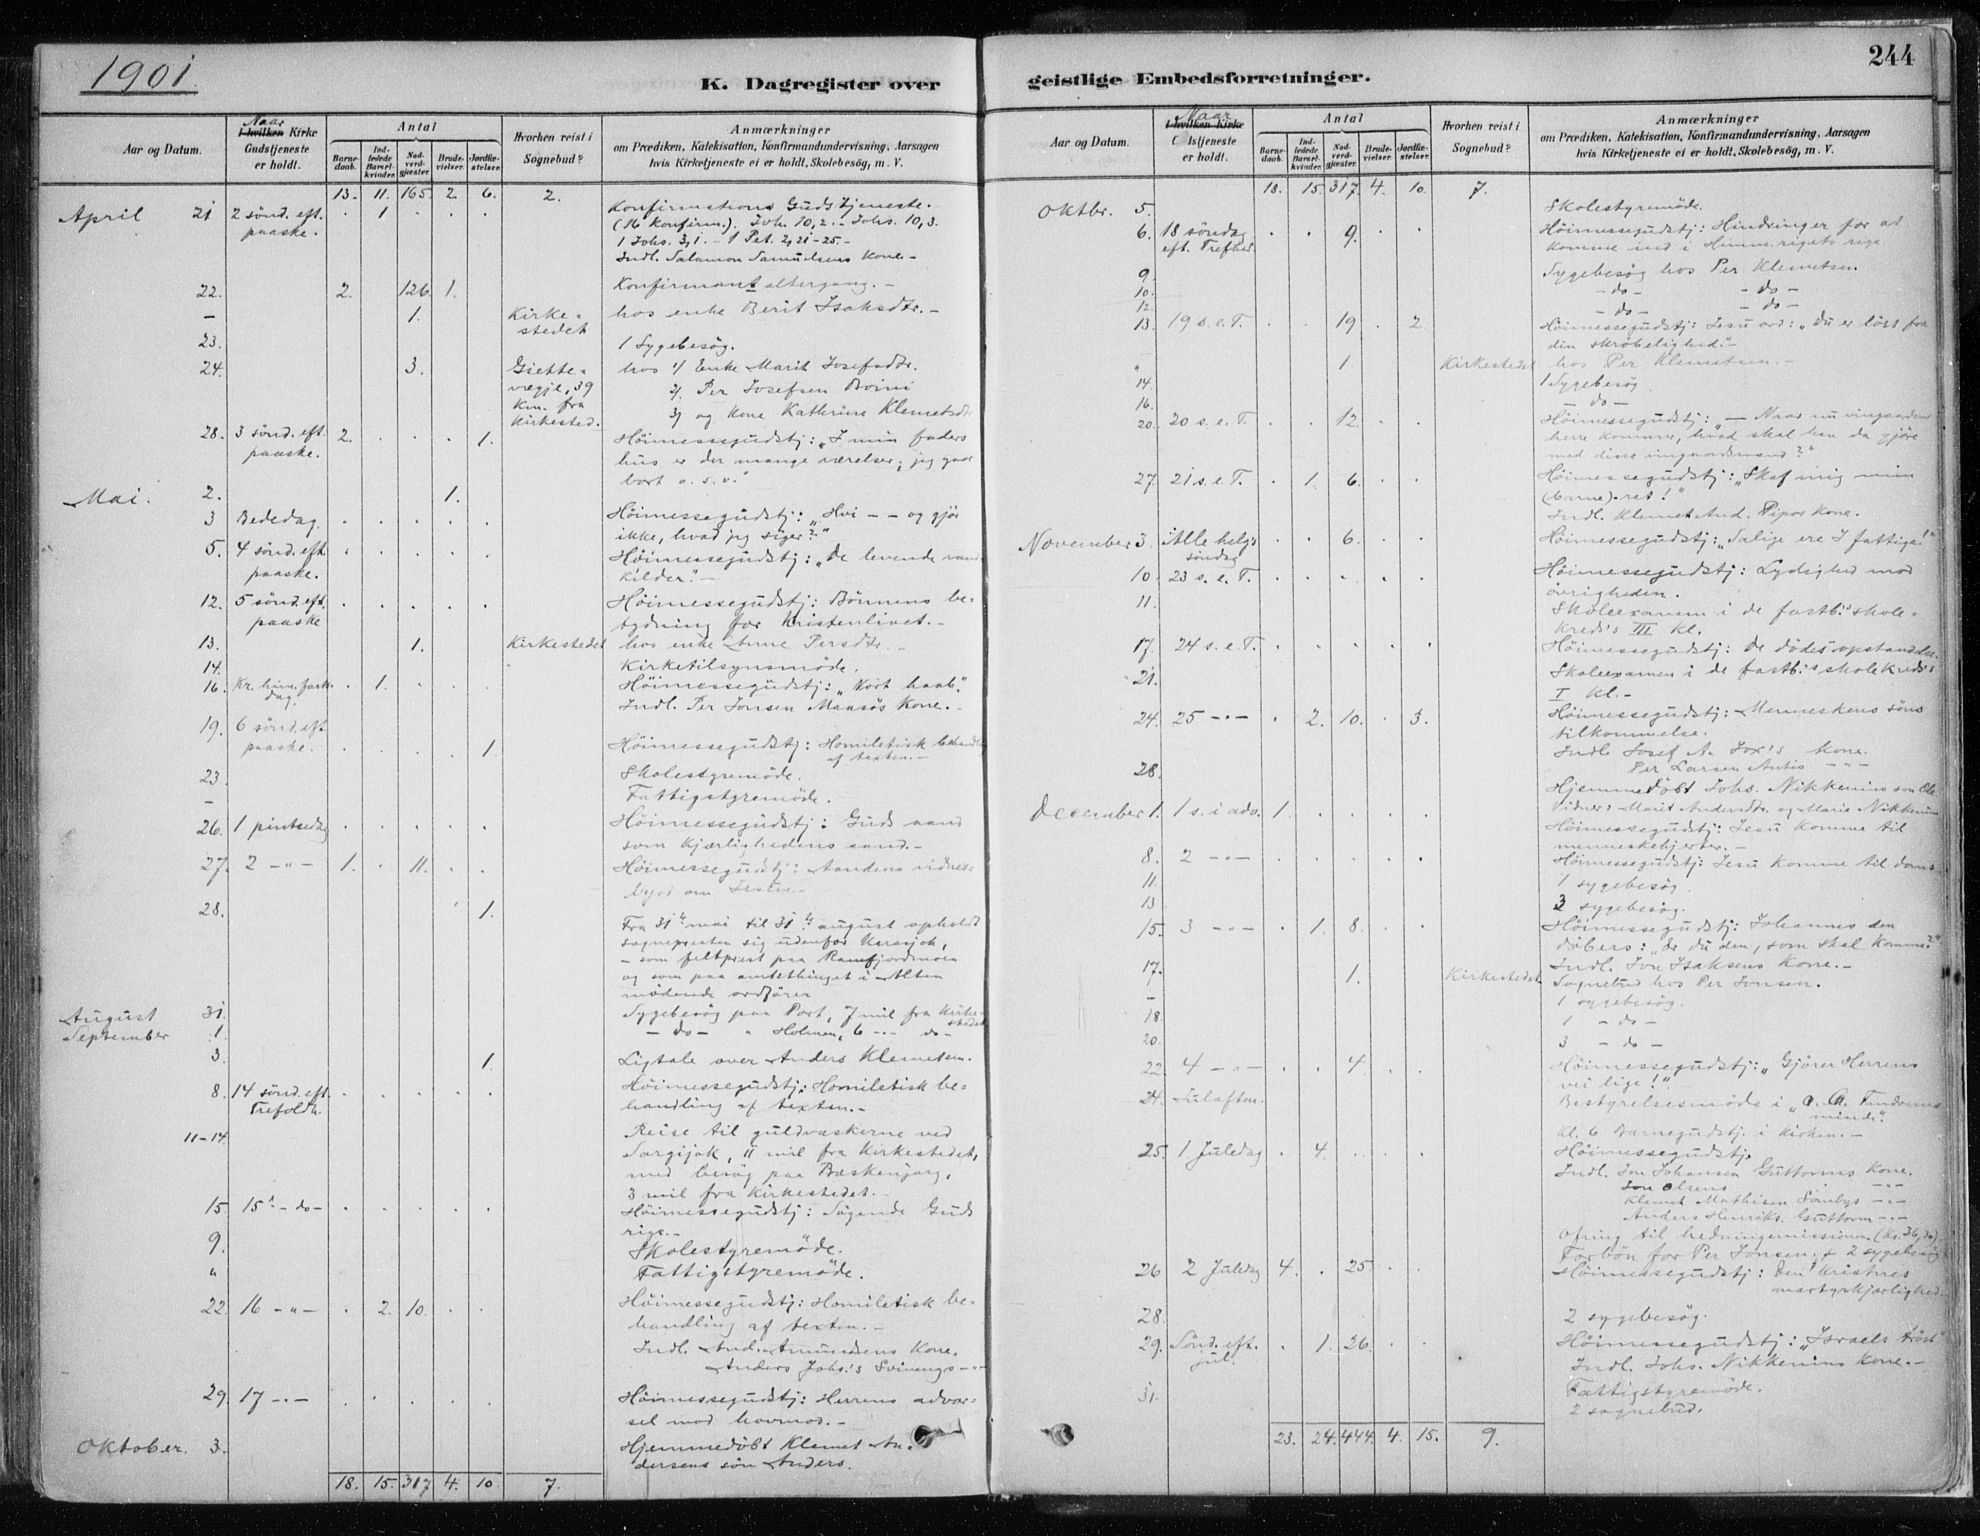 1901
K. Dagregister over
Aar og Datum.
Naar
I hvilken Kirke
Gudstjeneste
er holdt.
Antal
Barne-
daab.
Ind-
ledede
Barsel-
kvinder.
Nad-
verd-
gjæster.
Brude-
vielser.
Jordfæ-
stelser.
Hvorhen reist i
Sognebud?
Anmærkninger
om Prædiken, Katekisation, Konfirmandundervisning, Aarsagen
hvis Kirketjeneste ei er holdt, Skolebesög, m. V.
13. 11. 165. 2. 6. 2.
April 21 2 sönd. eft. . 1 . . . Konfirmations Gudstjeneste.
paaske. (16 Konfirm.). Joh. 10,2. - Johs. 10,3.
1 Johs. 3,1. - 1 Pet. 2,21-25.-
Indl. Salamon Samuelsens Kone.-
22. 2. 126. 1. Konfirmantaltergang.-
- 1. Kirke- hos enke Berit Isaksdtr.-
stedet
23. 1 Sygebesög.
24. 3. Giette- hos 1/ Enke Marit Josefsdtr.
vægje, 39 2/ Per Josefsen Boini
Km. fra 3/ og Kone Kathrine Klemetsdtr
Kirkested.
28. 3 sönd. eft. 2. . . . 1. Höimessegudstj: „I min faders
paaske. hus er der mange værelser; jeg gaar
bort o.s.v."
Mai. 2. 1.
3 Bededag. . . . . . Höimessegudstj: „Hvi - - og gjör
ikke, hvad jeg siger?"
5. 4 sönd. eft. . . . . . Höimessegudstj: „De levende vand
paaske. kilder".-
12. 5 sönd. eft. . . . . . Höimessegudstj: Bönnens be-
paaske tydning for Kristenlivet.-
13. 1. Kirkestedet hos enke Anne Persdtr.-
14. Kirketilsynsmöde.
16. Kr. him. fart . 1. Höimessegudstj: „Vort haab".
dag. Indl. Per Jonsen Maasös Kone.-
19. 6 sönd. eft.
paaske. . . . . 1. Höimessegudstj: Homiletisk behandl
af texten.-
23 Skolestyremöde.
- Fattigstyremöde.
26. 1 pintsedag . . . . . Höimessegudstj: Guds aand
som Kjærlighedens aand.-
27. 2 -"- 1. . 11. . . Höimessegudstj: Aandens vidnes-
byrd om Jesus.-
28. 1.
Fra 31te mai til 31te august opholdt
sognepresten sig udenfor Karasjok,
- som feltprest paa Ramfjordmoen
og som paa amtsthinget i Alten
mödende ordförer
August 31. Sygebesög paa Port, 7 mil fra Kirke-
stedet
September 1. -do- " Holmen, 6 -"- do-
3. 1. Ligtale over Anders Klemetsen.
8. 14 sönd. eft. . . . . . Höimessegudstj: Homiletisk be-
Trefoldh. handling af texten.-
11-14. Reise til guldvaskerne ved
Sargijok, 11 mil fra Kirkestedet,
med besög paa Bæskenjarg,
3 mil fra Kirkestedet.-
15 15de -do- . . . . . Höimessegudstj: Sögende Guds
rige.-
9. Skolestyremöde.
" Fattigstyremöde.
22. 16 -"- . 2. 10. . . Höimessegudstj: Homiletisk be-
handling af texten.-
Indl. And. Amundsens Kone.
Anders Johs.'s Svinengs -"-
29. 17 -"- . . . . . Höimessegudstj: Herrens advar-
sel mod hovmod.-
Oktober. 3. Hjemmedöbt Klemet An-
dersens sön Anders.
18. 15. 317 4. 10 7.
244
geistlige Embedsforretninger.
Aar og Datum.
Naar
I hvilken Kirke
er holdt.
Antal
Barne-
daab.
Ind-
ledede
Barsel-
kvinder.
Nad-
verd-
gjæster.
Brude-
vielser.
Jordfæ-
stelser.
Hvorhen reist i
Sognebud?
Anmærkninger
om Prædiken, Katekisation, Konfirmandundervisning, Aarsagen
hvis Kirketjeneste ei er holdt, Skolebesög, m. V.
18. 15. 317. 4. 10. 7.
Oktbr. 5. Skolestyremöde.
6. 18 söndag . . 9. . . Höimessegudstj: Hindringer for at
eft. Trefhed komme ind i Himmerigets rige
9. Sygebesög hos Per Klemetsen.
10. -do- -do-
12. -do- -do-
13. 19 s. e. T. . . 19 . 2. Höimessegudstj: Jesu ord: „Du er löst fra
din skröbelighed".-
" 1 Kirkestedet hos Per Klemetsen.-
14. 1 Sygebesög.
16. -do-
20. 20 s. e. T. . . 12. . . Höimessegudstj: „- Naar nu vingaardens
herre kommer, hvad skal han da gjöre
med disse vingaardsmænd?"
27. 21 s. e. T. . 1. 6. . . Höimessegudstj: „Skaf mig min
(barne)-ret!"
Indl. Klemet And. Pipos Kone.
November 3. Alle helg's . . 6. . . Höimessegudstj: „Salige ere I fattige!"
söndag
10. 23 s. e. T. . . . . . Höimessegudstj: Lydighed mod
övrigheden.
11. Skoleexamen i de fastb.'s skole-
kreds's III kl.
17. 24 s. e. T. . . . . . Höimessegudstj: De dödes opstandelse.
21. Skoleexamen i de fastb.'s skolekreds's
I kl.-
24. 25 -"- . 2. 10. . 3. Höimessegudstj: Menneskens söns
tilkommelse.
Indl. Josef A. Jox's kone.
Per Larsen Antis -"-
28. Hjemmedöbt Johs. Nikkenins sön Ole
Vidner: Marit Andersdtr. og Marie Nikkenin
December 1. 1 s. i adv. 1. . . . . Höimessegudstj: Jesu Komme til
menneskehjerter.-
8. 2 -"- . . . . . Höimessegudstj: Jesu Komme til doms
11. 1 sygebesög.
13 3 sygebesög.
15. 3 -"- . 1. 8. . . Höimessegudstj: Johannes den
döbers: „Er du den, som skal komme?"
Indl. Jon Isaksens Kone.-
17. 1. Kirkestedet Sognebud hos Per Jonsen.
- 1 sygebesög.
18. 1 -do-
20. 3 -do-
22. 4 -"- . . 4. . . Höimessegudstj: „Gjörer Herrens
vei lige!"
24. Julaften. Bestyrelsesmöde i „O. A. Tandrens
minde".
Kl. 6 Barnegudstj. i Kirken.-
25. 1 Juledag . 4. . . . Höimessegudstj.
Indl. Jon Johansen Guttorms Kone.
Jon Olsens -"-
Klemet Mathisen Sömbys -"-
Anders Henriks. Guttorm -"-
Ofring til hedningemissionen (kr. 36,30).
Forbön for Per Jonsen. + 2 sygebesög
26 2 Juledag 4. . 25. . . Höimessegudstj: Den Kristnes
martyrkjærlighed.
28. 2 sygebesög.
29. Sönd. eft. . 1. 26. . . Höimessegudstj: „Israels tröst"
jul. Indl. Johs. Nikkenins Kone.-
31. Fattigstyremöde.
2 sognebud.
23. 24. 444. 4. 15. 9.